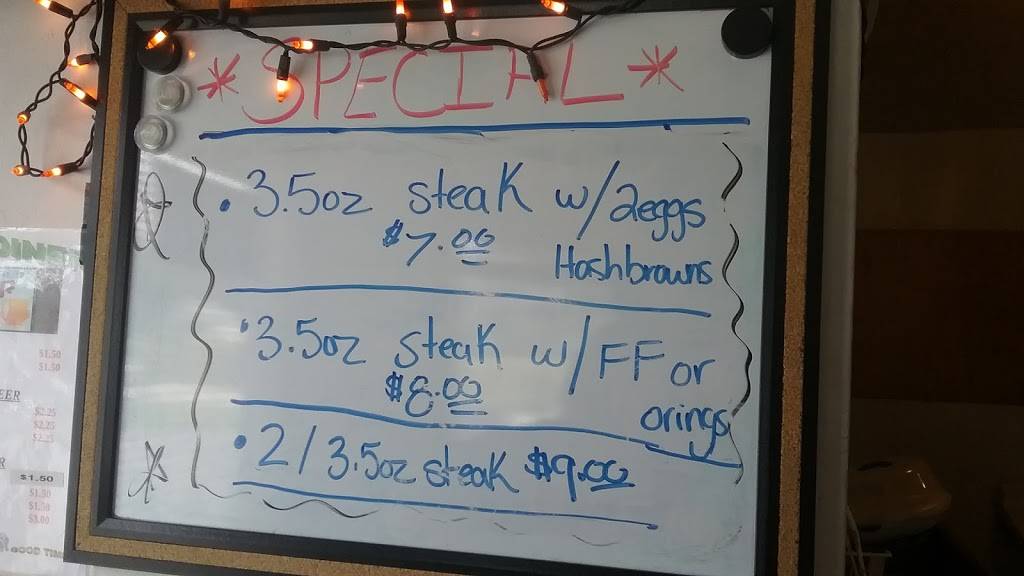 *SPECIAL*
• 3.5oz steak w/2eggs
$7.00 Hashbrowns
• 3.5oz steak w/FF or
$8.00 orings
• 2/3.5oz steak $9.00
$1.50
$1.50
$2.25
$2.25
$2.25
$1.50
$1.50
$1.50
$3.00